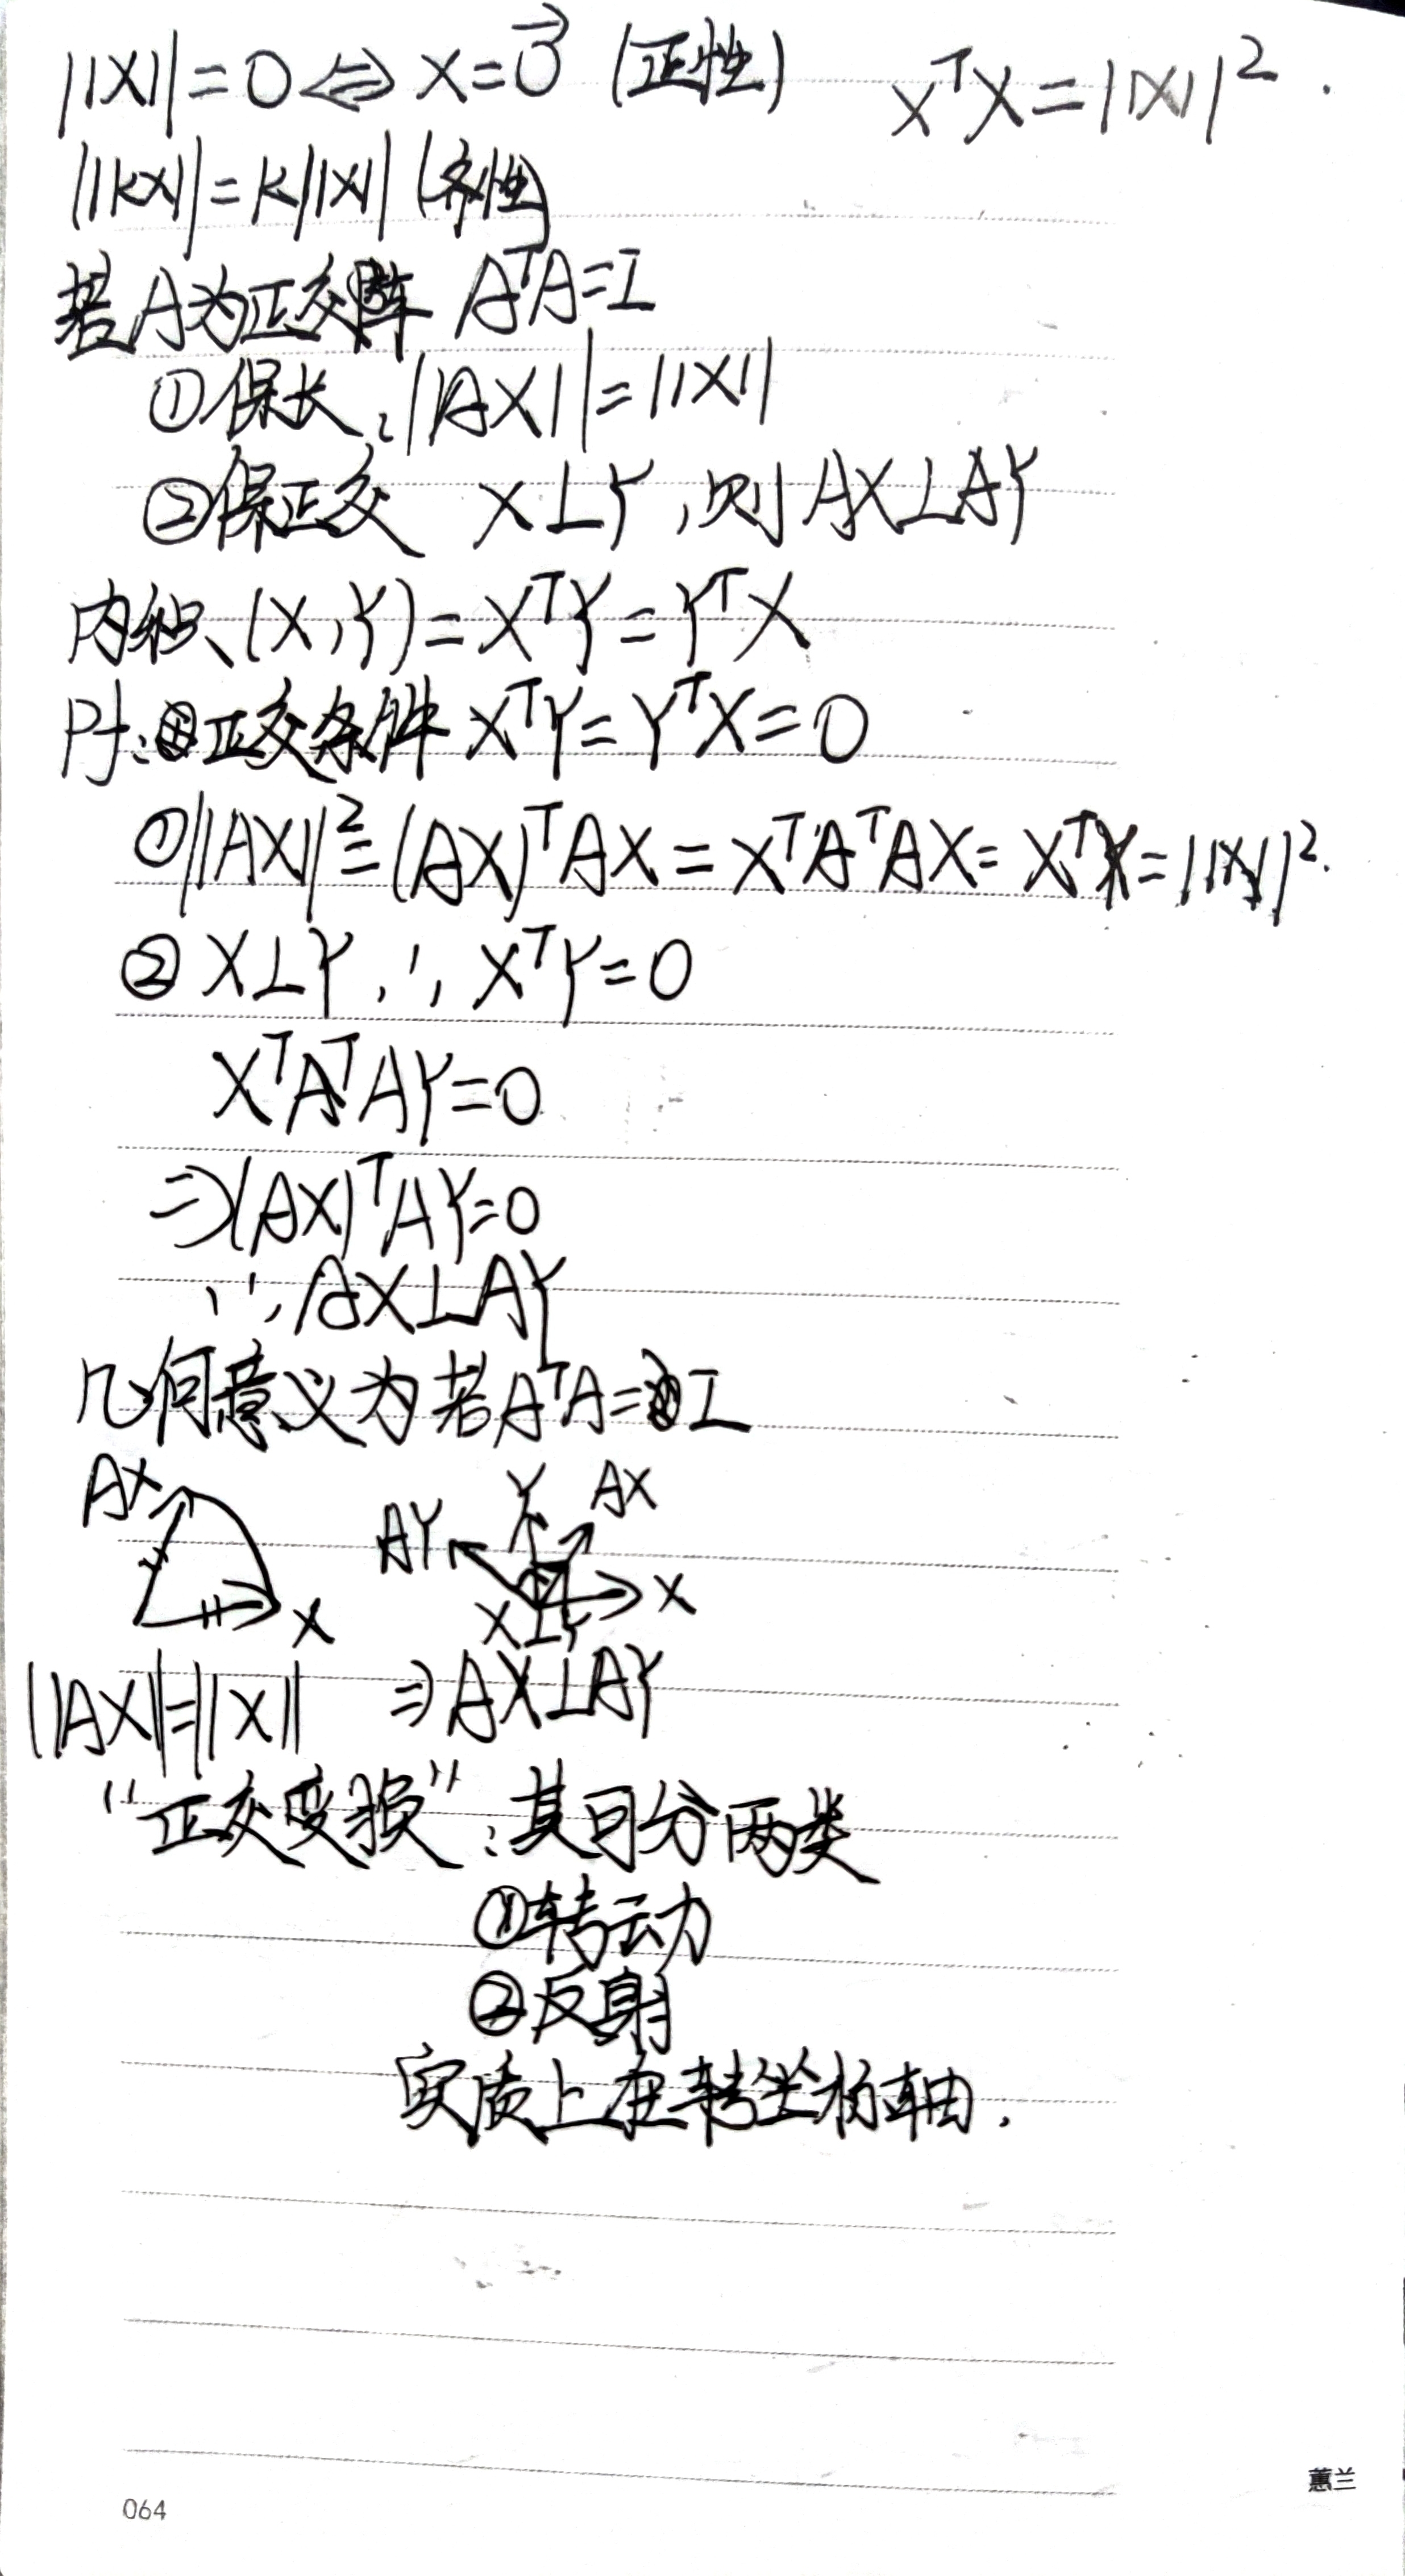 ||X||=0⇔X=0⃗ (正性) XᵀX=||X||².
||kX||=k||X|| (齐性)
若A为正交阵 AᵀA=I
①保长:||AX||=||X||
②保正交 X⊥Y,则AX⊥AY
内积、(X,Y)=XᵀY=YᵀX
Pf:正交条件 XᵀY=YᵀX=0
①||AX||²=(AX)ᵀAX=XᵀAᵀAX=XᵀX=||X||².
②X⊥Y,∴XᵀY=0
XᵀAᵀAY=0
⇒(AX)ᵀAY=0
∴AX⊥AY
几何意义为若AᵀA=I
AX Y AX
AY
X X⊥Y X
||AX||=||X|| ⇒AX⊥AY
“正交变损”:其可分两类
①转动
②反射
实质上在转坐标轴.
064 蕙兰